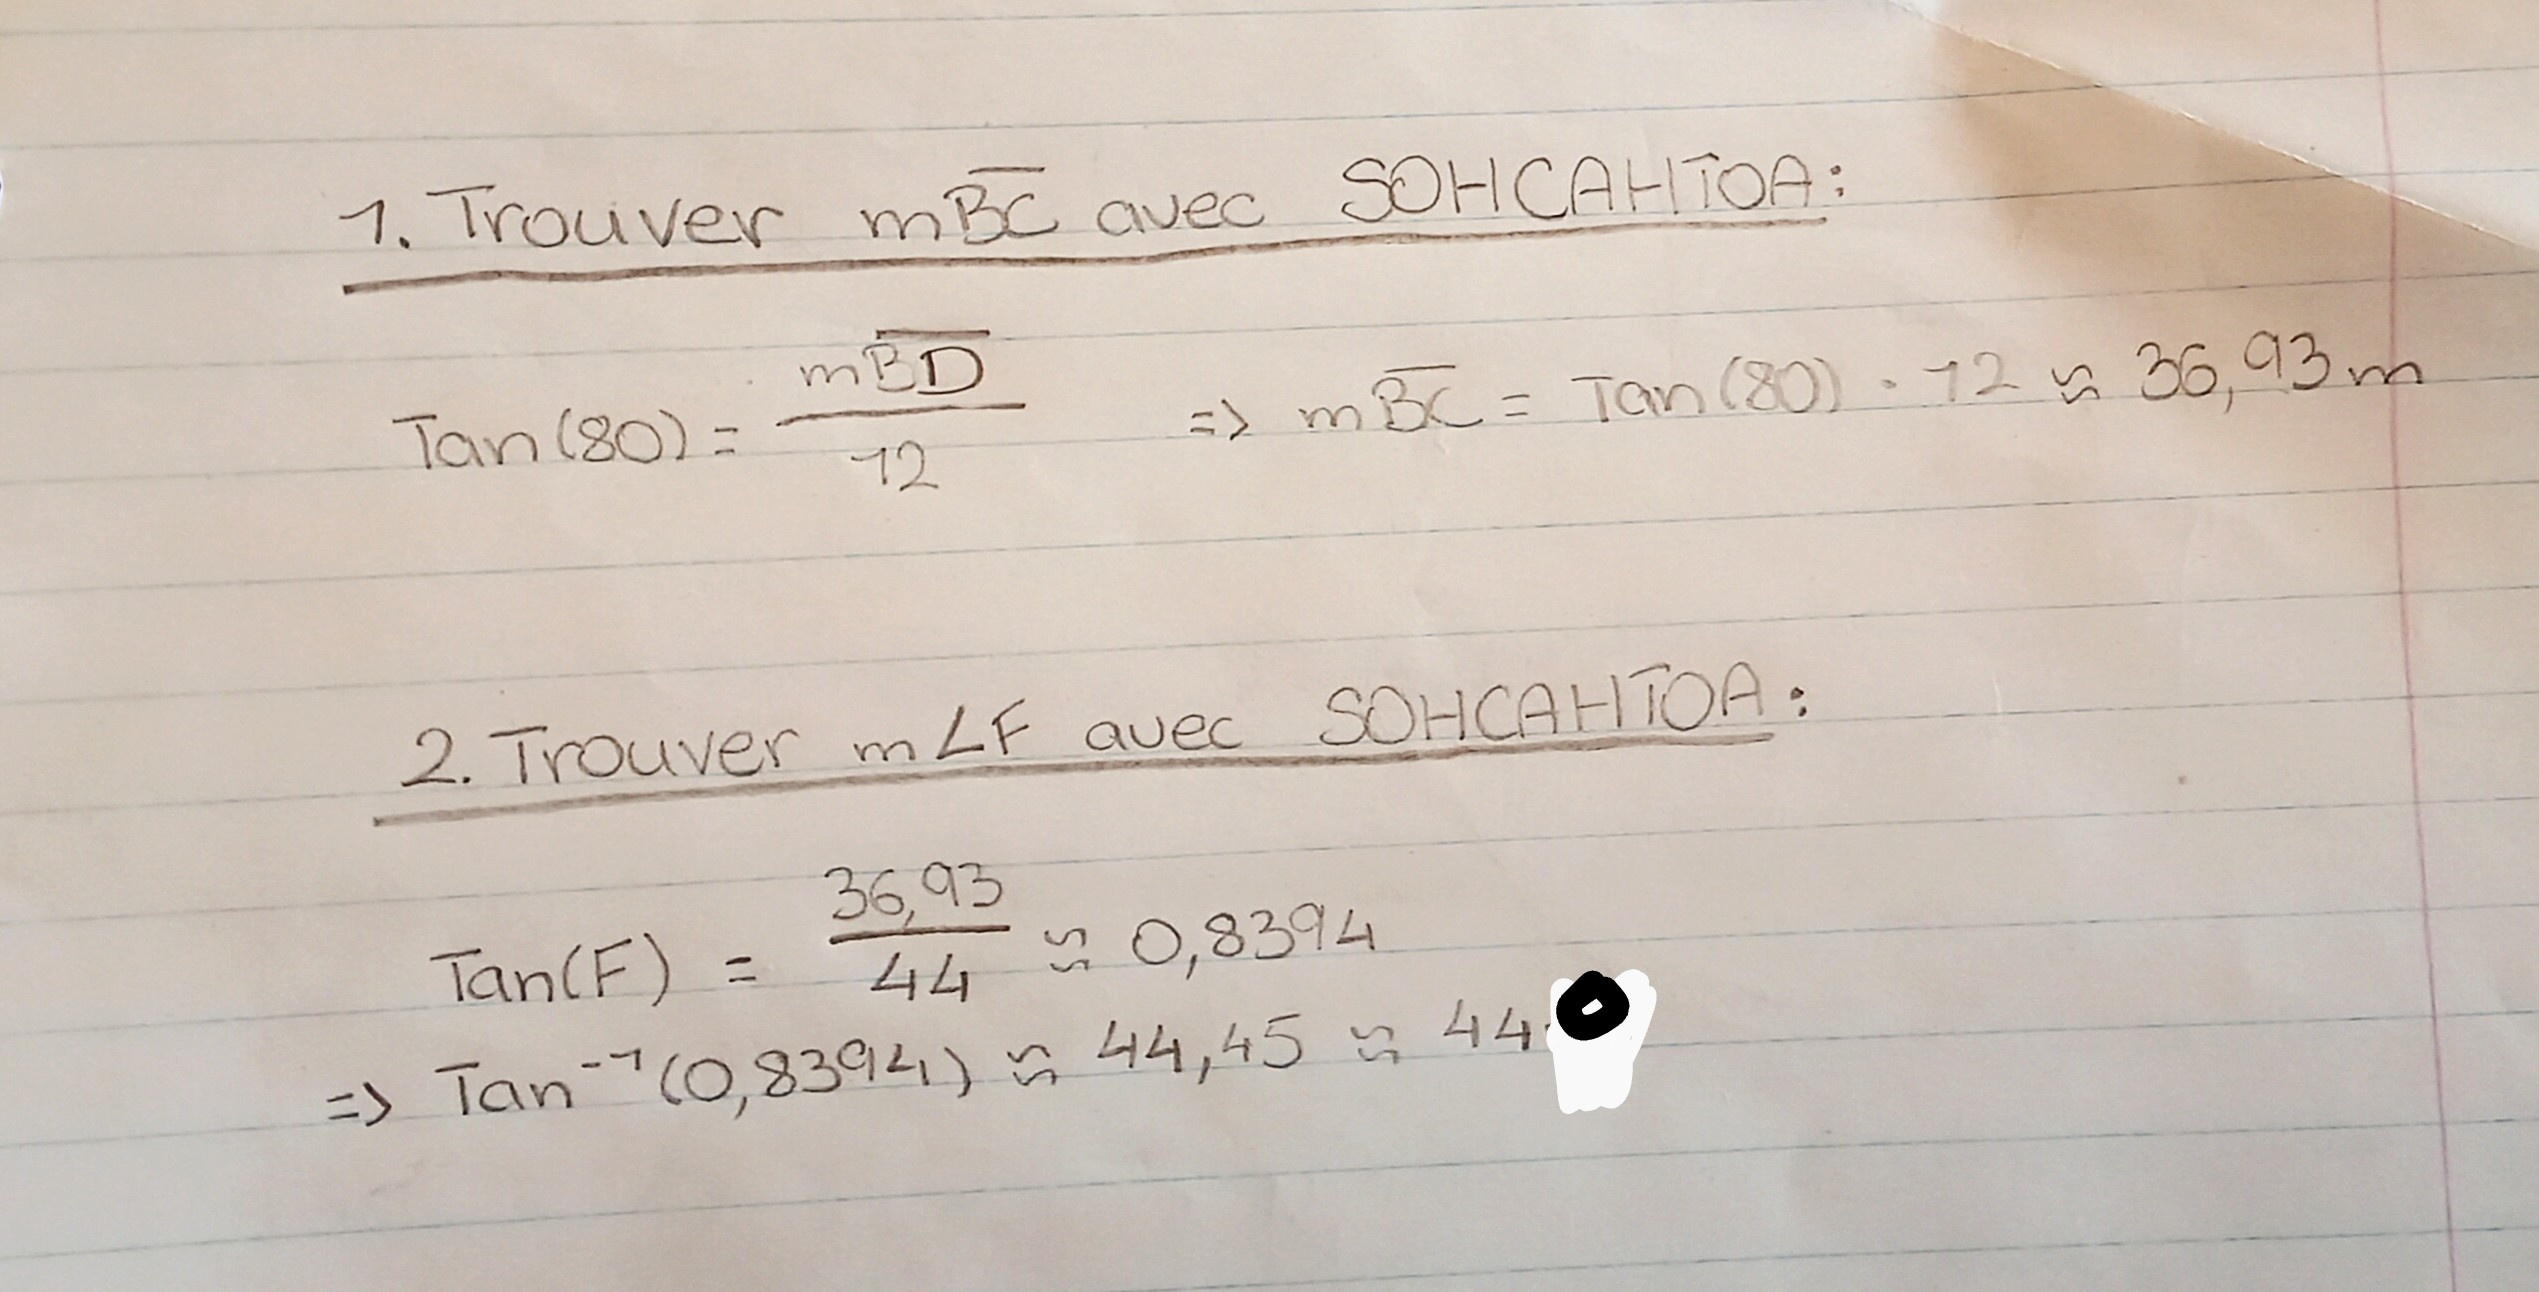 1. Trouver m\overline{BC} avec SOHCAHTOA:
Tan(80) = \frac{m\overline{BD}}{12} => m\overline{BC} = Tan(80) · 12 ≈ 36,93m
2. Trouver m∠F avec SOHCAHTOA:
Tan(F) = \frac{36,93}{44} ≈ 0,8394
=> Tan⁻¹(0,8394) ≈ 44,45 ≈ 44°